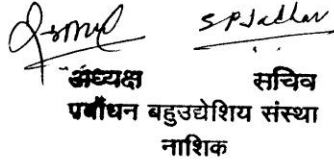 S.P.Jadhav
अध्यक्ष सचिव
प्रबोधन बहुउद्येशिय संस्था
नाशिक